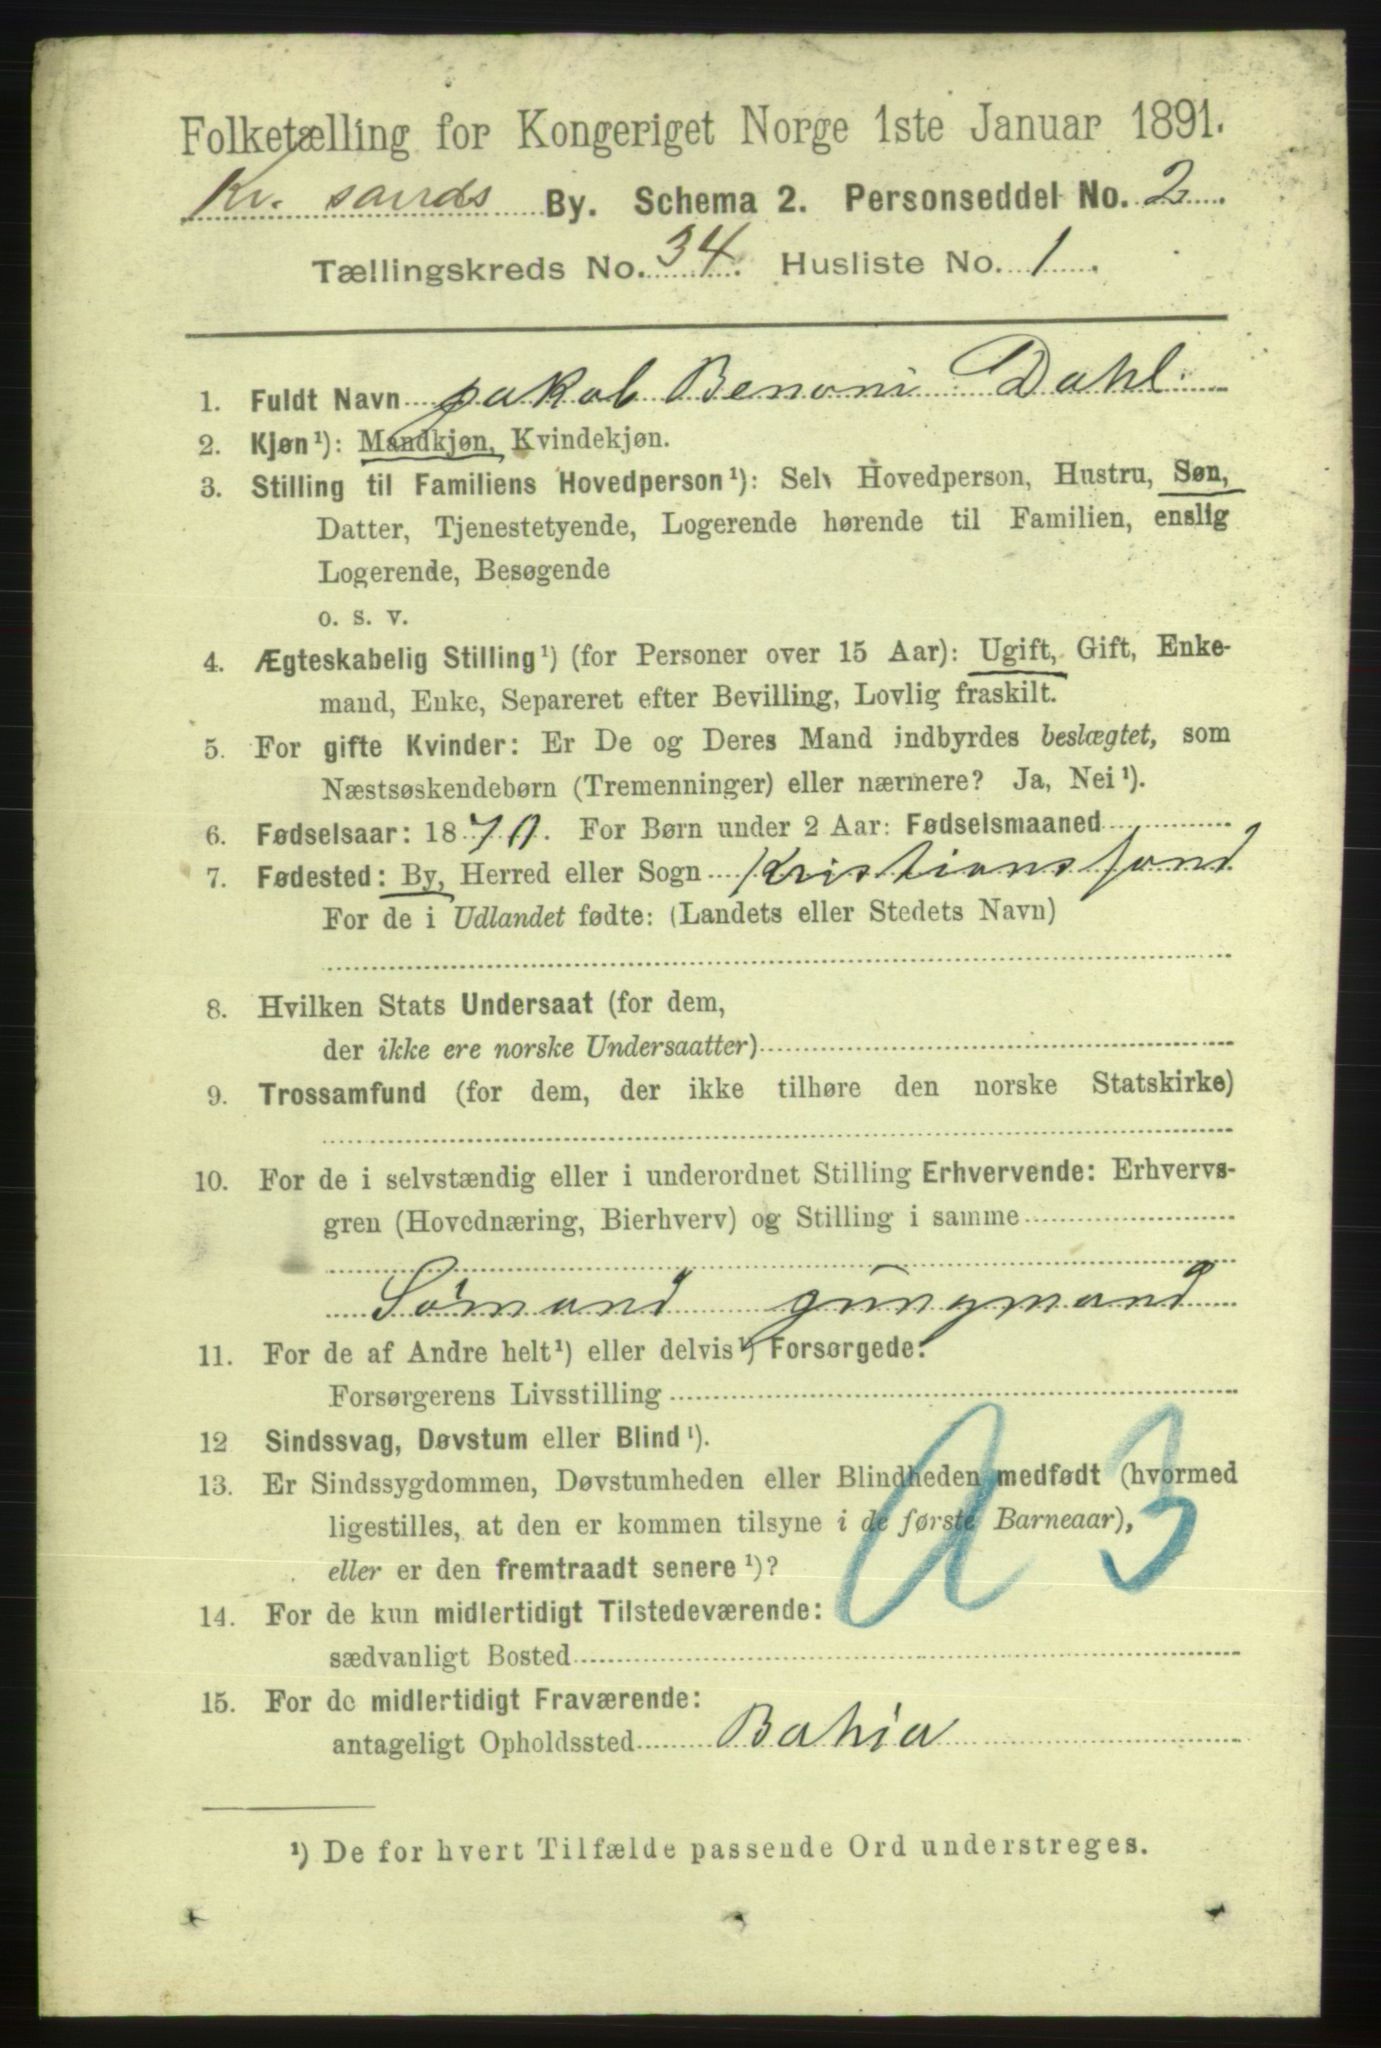 Folketælling for Kongeriget Norge 1ste Januar 1891.
Kr. sands By. Schema 2. Personseddel No. 2
Tællingskreds No. 34. Husliste No. 1.
1. Fuldt Navn Jakob Benoni Dahl
2. Kjøn¹): Mandkjøn, Kvindekjøn.
3. Stilling til Familiens Hovedperson¹): Selv Hovedperson, Hustru, Søn,
Datter, Tjenestetyende, Logerende hørende til Familien, enslig
Logerende, Besøgende
o. s. v.
4. Ægteskabelig Stilling¹) (for Personer over 15 Aar): Ugift, Gift, Enke-
mand, Enke, Separeret efter Bevilling, Lovlig fraskilt.
5. For gifte Kvinder: Er De og Deres Mand indbyrdes beslægtet, som
Næstsøskendebørn (Tremenninger) eller nærmere? Ja, Nei¹).
6. Fødselsaar: 1870. For Børn under 2 Aar: Fødselsmaaned
7. Fødested: By, Herred eller Sogn Kristianssand
For de i Udlandet fødte: (Landets eller Stedets Navn)
8. Hvilken Stats Undersaat (for dem,
der ikke ere norske Undersaatter)
9. Trossamfund (for dem, der ikke tilhøre den norske Statskirke)
10. For de i selvstændig eller i underordnet Stilling Erhvervende: Erhvervs-
gren (Hovednæring, Bierhverv) og Stilling i samme
Sømand jungmand
11. For de af Andre helt¹) eller delvis¹) Forsørgede:
Forsørgerens Livsstilling
12 Sindssvag, Døvstum eller Blind¹).
13. Er Sindssygdommen, Døvstumheden eller Blindheden medfødt (hvormed
ligestilles, at den er kommen tilsyne i de første Barneaar),
eller er den fremtraadt senere¹)?
A 3
14. For de kun midlertidigt Tilstedeværende:
sædvanligt Bosted
15. For de midlertidigt Fraværende:
antageligt Opholdssted Bahia
¹) De for hvert Tilfælde passende Ord understreges.